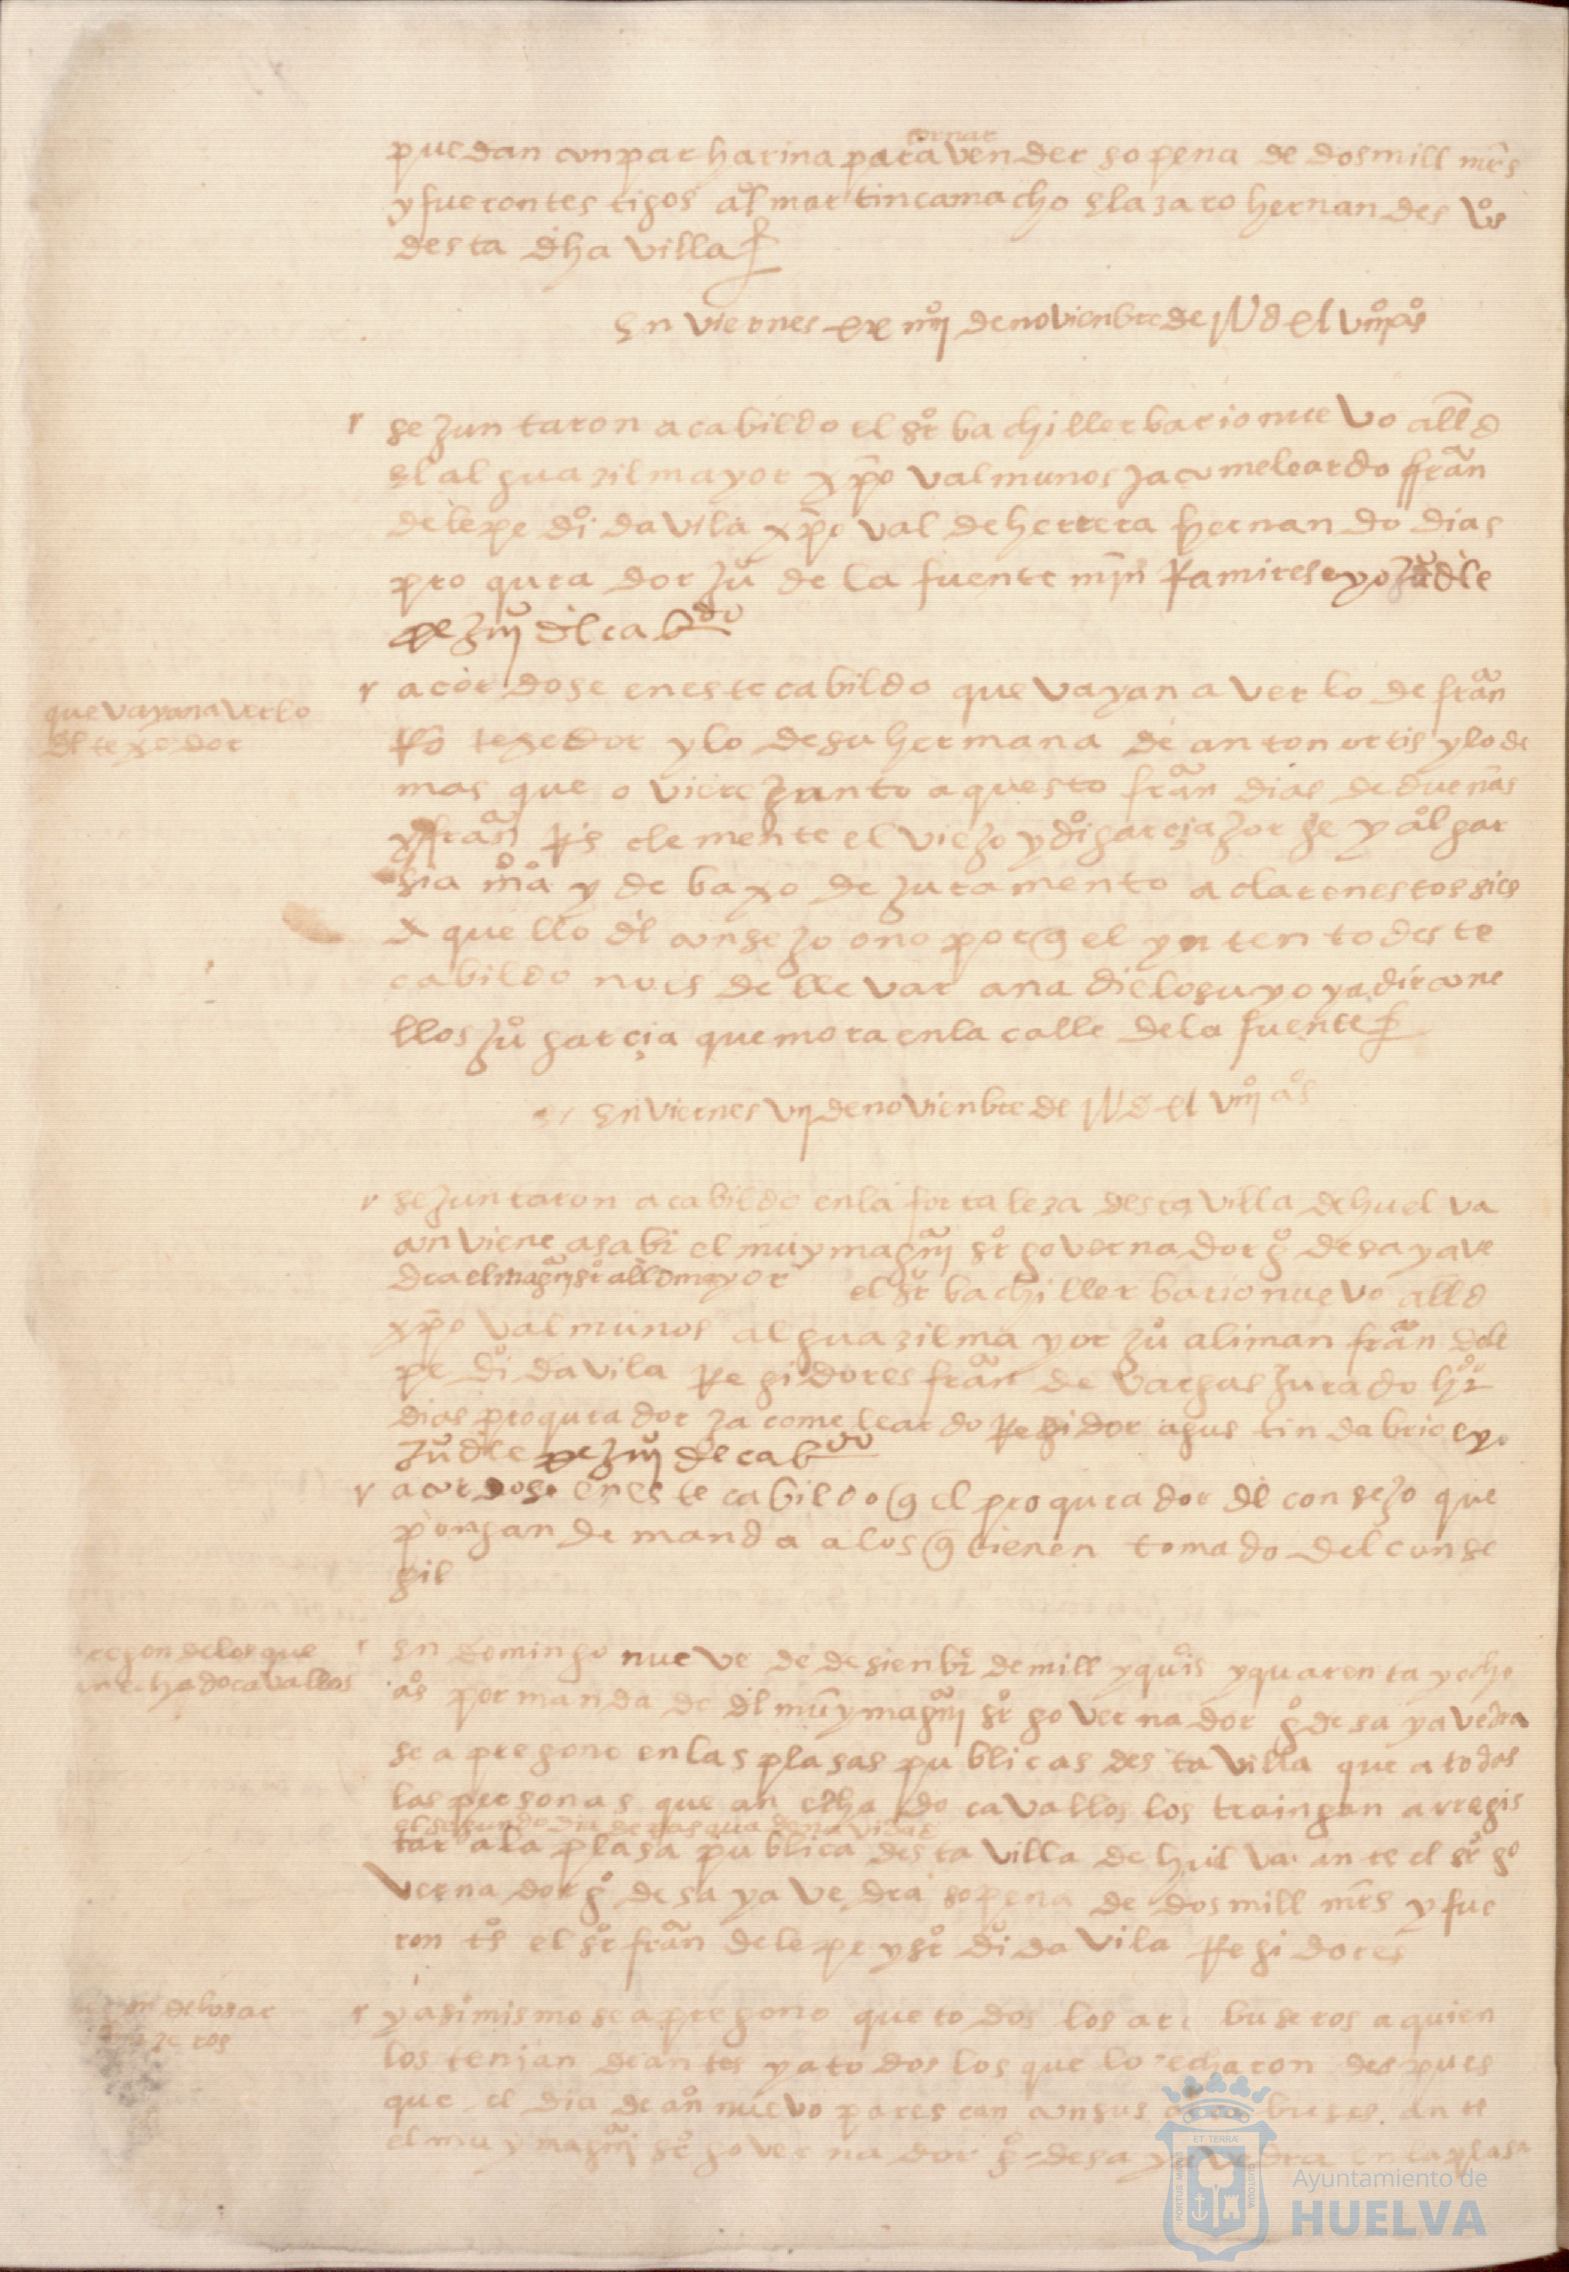 tornar
puedan conpar harina para vender so pena de dos mill mrs
y fueron testigos al martin camacho e lazaro hernandes vos
desta dha villa
En viernes de novienbre de MdxlViij as
se juntaron a cabildo el sr bachiller barionuevo alld
el alguazil mayor xpo val munos jacome leardo ffran
de lepe do davila xpo val de herrera hernando dias
procurador ju de la fuente mjn Ramires e yo ju de le
del cabdo
acordose en este cabildo que vayan a ver lo de fran
que vayan a ver lo
dl texedor
Ro texedor y lo de su hermana de anton ortis y lo de
mas que oviere junto a questo fran dias de duenas
y ffran Rs clemente el viejo y do garçia jorge y al gar
sia ma y debaxo de juramento aclaren estos si es
aquello dl consejo o no porq el yntento deste
cabildo no es de llevar a nadie lo suyo y a dir con e
llos ju garçia que mora en la calle de la fuente
En viernes vij de novienbre de Mdxl viij as
se juntaron a cabildo en la fortaleza desta villa de huelva
conviene a sabr el muy magco sr governador go de sayave
dra el magco sr alld mayor el sr bachiller barionuevo alld
xpo val munos alguazil mayor ju aliman fran de le
pe do davila Regidores fran de bargas jurado hr
dias procurador jacome leardo Regidor agustin dabrio e yo
ju de le de cabdo
acordose en este cabildo q el procurador del consejo que
pongan demanda a los q tienen tomado del conse
gil
en domingo nueve de desienbr de mill y quis y quarenta y ocho
pregon de los que
an echado cavallos
as por mandado dl muy magco sr governador go de sayavedra
se apregono en las plasas publicas desta villa que a todas
las personas que an echado cavallos los traingan a rregis
el segundo dia de pasqua de navidad
trar a la plasa publica desta villa de huelva ante el sr go
vernador go de sayavedra so pena de dos mill mrs y fue
ron ts el sr fran de lepe y sr do davila Regidores
y asimismo se apregono que todos los arcabuseros a quien
de los ar
zeros
los tenian de antes y a todos los que lo echaron despues
que el dia de an nuevo parescan con sus arcabuses ante
el muy magco sr governador go de sayavedra en la plasa
ET TERRÆ
PORTUS MARIS
CUSTODIA
Ayuntamiento de
HUELVA